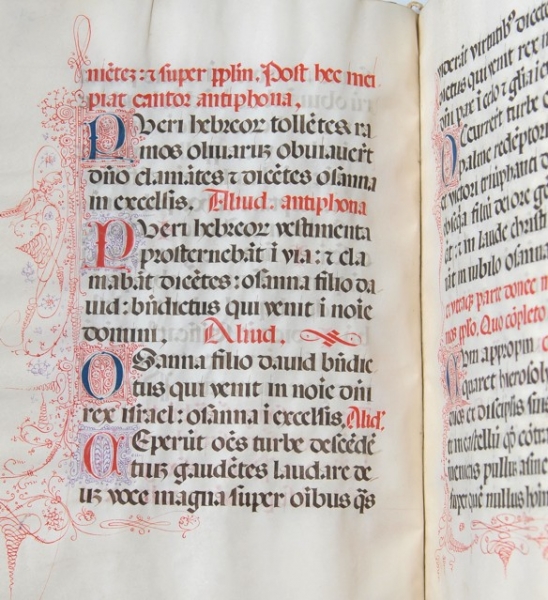 mētez: ⁊ super pp̄lin. Post hec mei
piat cantor antiphona.
PVeri hebreoꝝ tollētes ra
mos oliuaruꝫ obuiaueꝛt
dño clamātes ⁊ dicētes osanna
in excelsis. Aliud. antiphona
PVeri hebreoꝛ vestimenta
prosternebāt i via: ⁊ cla
mabāt dicētes: osanna filio da
uid: bn̄dictus qui venit i noīe
domini. Aliud.
OSanna filio dauid bn̄dic
tus qui venit in noīe dñi
rex israel: osanna i excelsis. Aliđ.
CEperūt oēs turbe descēdē
tiuꝫ gaudētes laudare de
uꝫ voce magna super oībus qs̄
virtutibꝰ
dictus qui venit rex in
pax i celo ⁊
OCcurrūt turbe c
palmis redēptori
et victori triūphanti d
filiū dei ore ge
āt: ⁊ in laude christi
āt in iubilo osanna
parte donec
ipso. Quo cōpleto
CUm appropin
quaret hierosoly
et discipuls suis
in castellū qđ cōtra
pullus asine
super quē nullus homi